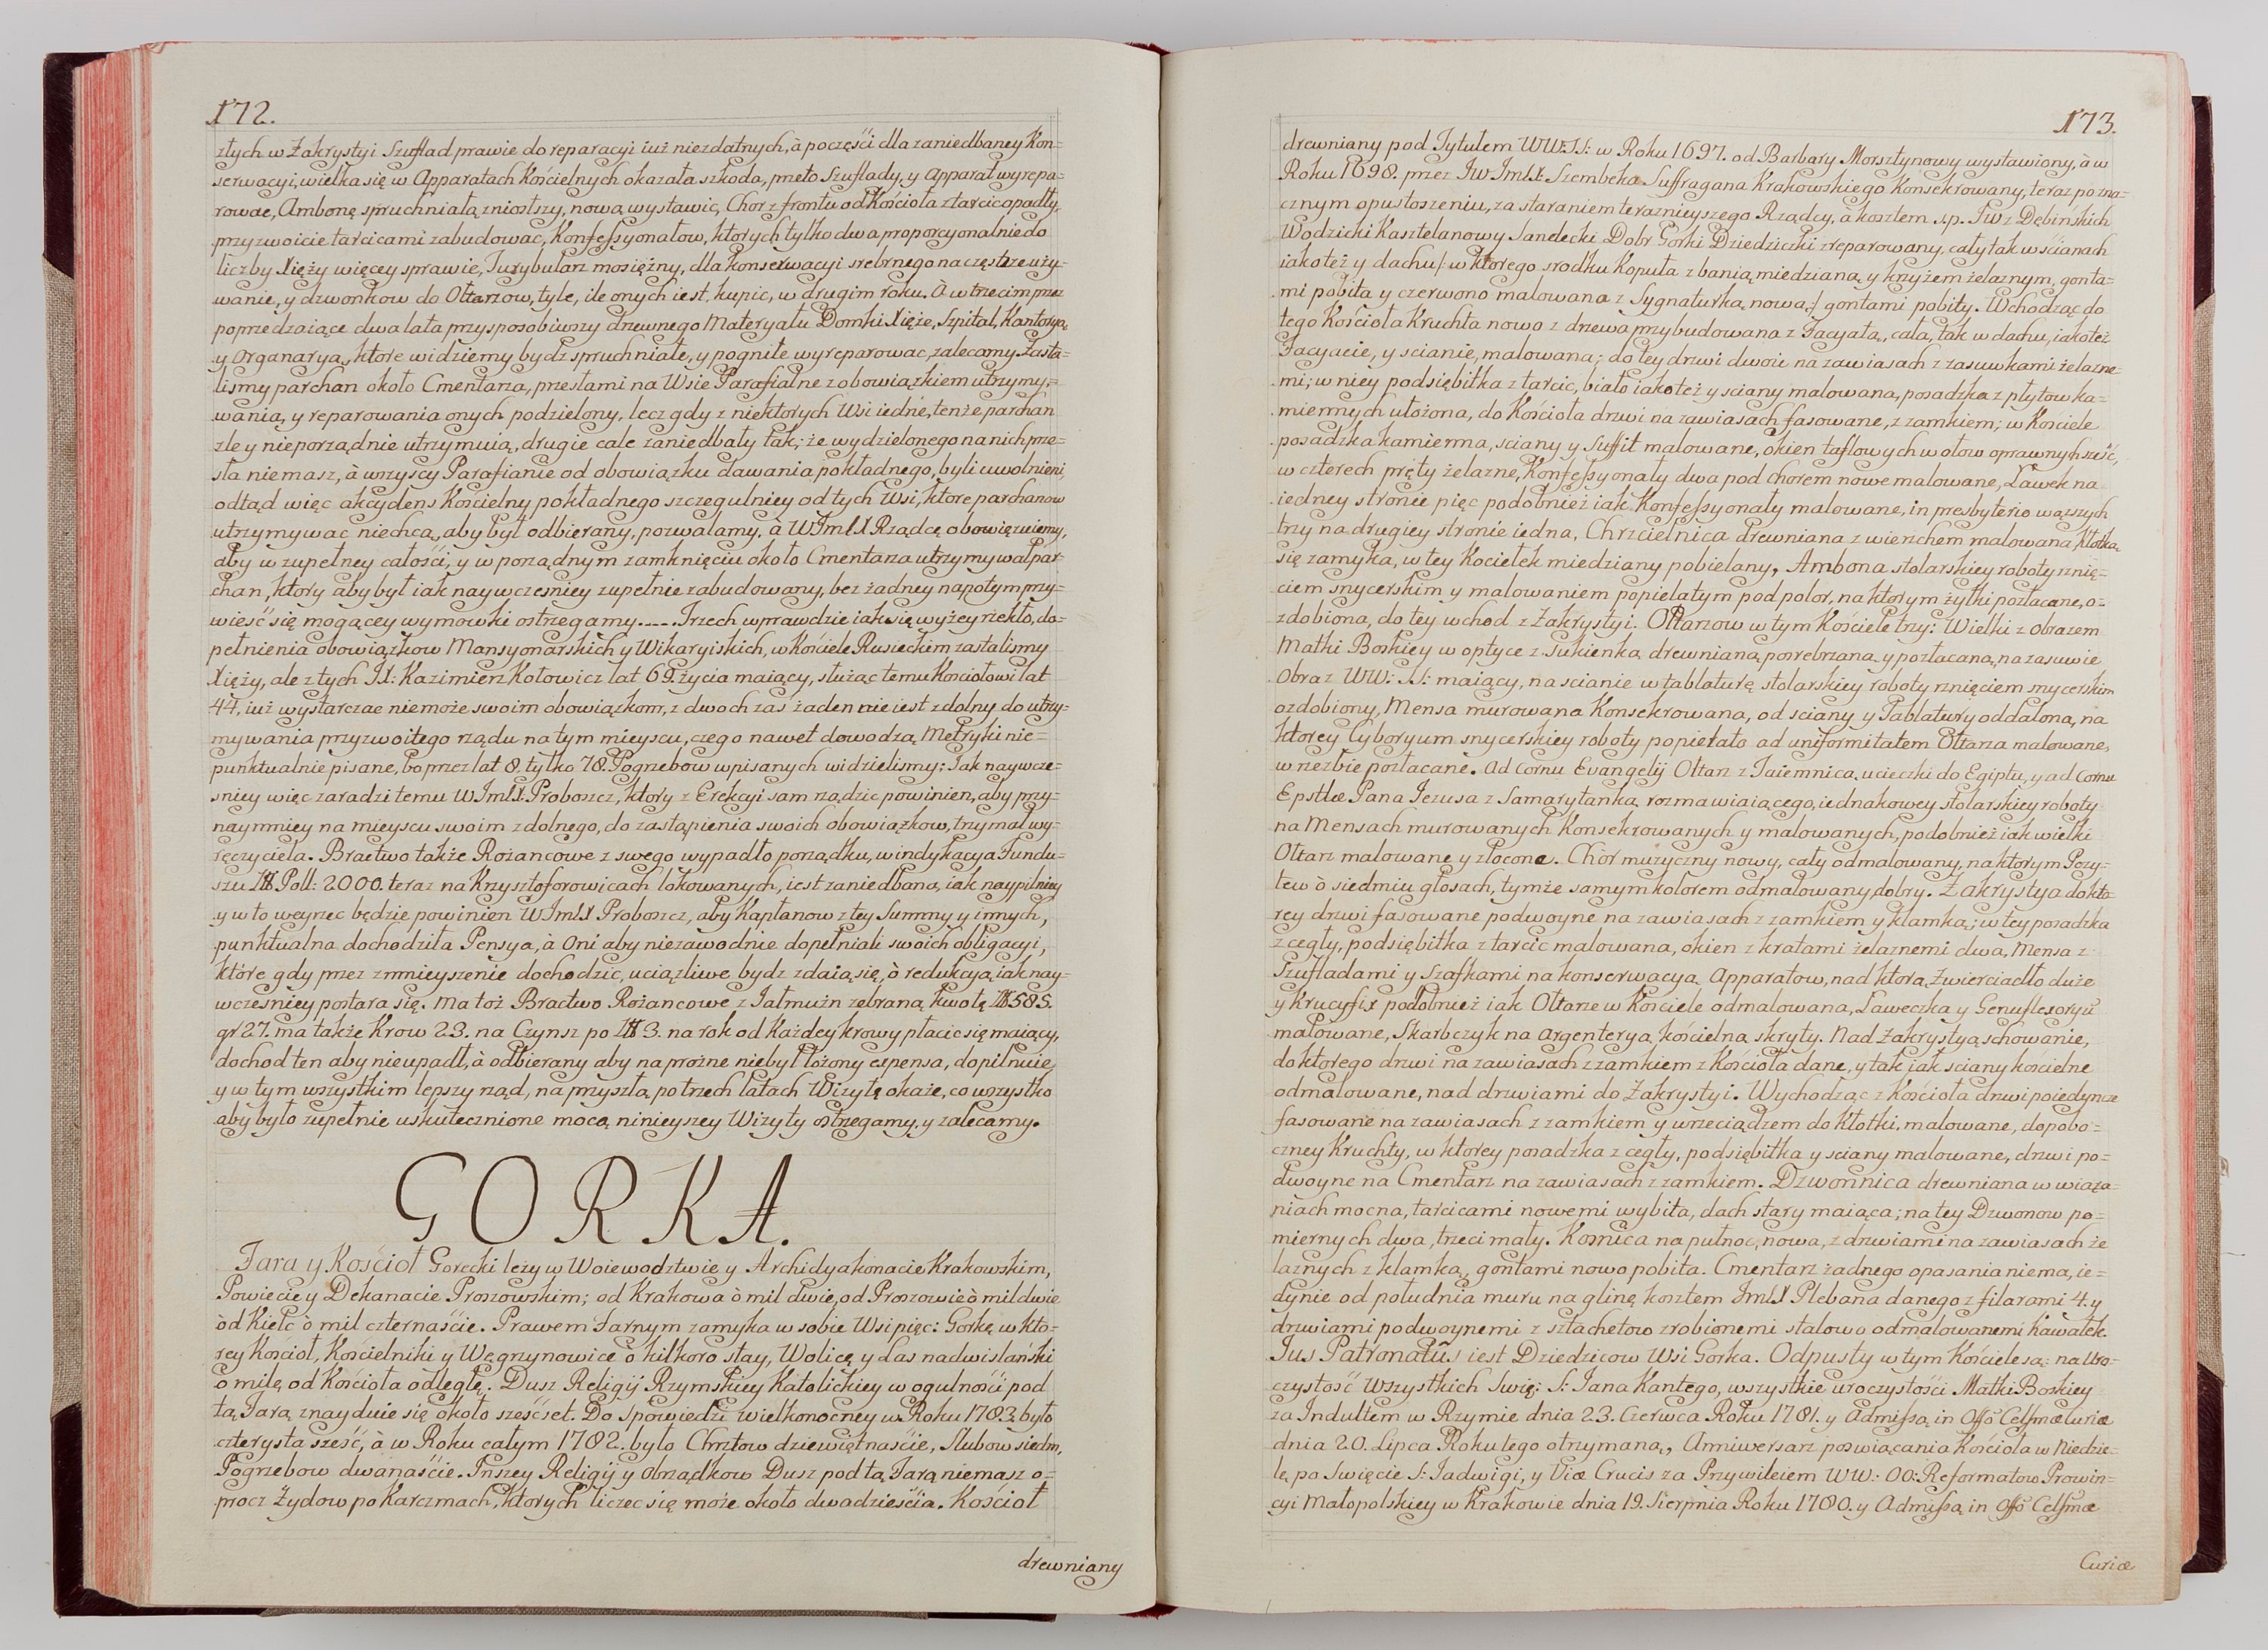 172.
złych w Zakrystyi Szuflad prawie do reparacyi iuż niezdatnych, à poczęści dla zaniedbaney Kon-
serwacyi, wielka się w Apparatach Kościelnych okazała szkoda, przeto Szuflady, y Apparat wyrepa-
rowac, Ambonę spruchniałą zniosłszy, nową wystawic, Chor z frontu od Kościoła z tarcic opadły,
przyzwoicie tarcicami zabudowac, Konfessyonałow, ktorych tylko dwa proporcyonalnie do
liczby Xięży więcey sprawie, Turybularz mosiężny, dla konserwacyi srebrnego na częstsze uży-
wanie, y dzwonkow do Ołtarzow, tyle, ile onych iest, kupic, w drugim roku. A w trzecim przez
poprzedzaiące dwa lata przysposobiwszy drzewnego Materyału Domki Xięże, Szpital, Kantoryą,
y Organaryą, ktore widziemy bydz spruchniałe, y pogniłe wyreparowac, zalecamy. Zasta-
lismy parchan około Cmentarza, przesłami na Wsie Parafialne z obowiązkiem utrzymy-
wania, y reparowania onych podzielony, lecz gdy z niektorych Wsi iedne, tenże parchan
zle y nieporządnie utrzymuią, drugie cale zaniedbały tak, że wydzielonego na nich prze-
sła niemasz, à wszyscy Parafianie od obowiązku dawania pokładnego, byli uwolnieni,
odtąd więc akcydens Kościelny pokładnego szczegulniey od tych Wsi, ktore parchanow
utrzymywac niechcą, aby był odbierany, pozwalamy, à WJmX Rządcę obowięzuiemy,
aby w zupełney całości, y w porządnym zamknięciu około Cmentarza utrzymywał par-
chan, ktory aby był iak naywczesniey zupełnie zabudowany, bez żadney napotym przy-
wieść się mogącey wymowki ostrzegamy..... Trzech wprawdzie iak się wyżey rzekło, do-
pełnienia obowiązkow Mansyonarskich y Wikaryiskich, w Kościele Rusieckim zastalismy
Xięży, ale z tych JX: Kazimierz Kołowicz lat 69. życia maiący, służąc temu Kościołowi lat
44. iuż wystarczac niemoże swoim obowiązkom, z dwoch zas żaden nieiest zdolny do utrzy-
mywania przyzwoitego rządu na tym mieyscu, czego nawet dowodzą Metryki nie-
punktualnie pisane, bo przez lat 8. tylko 78. Pogrzebow wpisanych widzielismy: Jak naywcze-
sniey więc zaradzi temu WJmX. Proboszcz, ktory z Erekcyi sam rządzic powinien, aby przy-
naymniey na mieyscu swoim zdolnego, do zastąpienia swoich obowiązkow, trzymał wy-
ręczyciela. Bractwo także Rożancowe z swego wypadło porządku, windykacya Fundu-
szu Poll: 2000. teraz na Krzysztoforowicach lokowanych, iest zaniedbana, iak naypilniey
y w to weyrzec będzie powinien WJmX Proboszcz, aby Kapłanow z tey Summy y innych,
punktualna dochodziła Pensya, à Oni aby niezawodnie dopełniali swoich obligacyi,
które gdy przez zmnieyszenie dochodzic, uciążliwe bydz zdaią się, ò redukcyą iak nay-
wczesniey postara się. Ma toż Bractwo Rożancowe z Jałmużn zebraną kwotę 585.
gr 27. ma także Krow 23. na Czynsz po 3. na rok od Każdey krowy płacic się maiący,
dochod ten aby nieupadł, à odbierany aby na prożne niebył łożony expensa, dopilnuie,
y w tym wszystkim lepszy rząd, na przyszłą po trzech latach Wizytę okaże, co wszystko
aby było zupełnie uskutecznione mocą ninieyszey Wizyty ostrzegamy, y zalecamy.
GORKA.
Fara y Kościoł Gorecki leży w Woiewodztwie y Archidyakonacie Krakowskim,
Powiecie y Dekanacie Proszowskim; od Krakowa ò mil dwie, od Proszowic ò mil dwie
od Kielc ò mil czternaście. Prawem Farnym zamyka w sobie Wsi pięc: Gorkę w kto-
rey Kościoł, Kościelniki y Węgrzynowice ò kilkoro stay, Wolicę y Las nadwislański
o milę, od Kościoła odległe. Dusz Religij Rzymskiey Katolickiey w ogulności pod
tą Farą znayduie się około sześćset. Do Spowiedzi wielkonocney w Roku 1783. było
czterysta sześć, à w Roku całym 1782. było Chrztow dziewiętnaście, Slubow siedm,
Pogrzebow dwanaście. Inszey Religij y Obrządkow Dusz pod tą Farą niemasz o-
procz Żydow po Karczmach, ktorych liczec się może około dwadzieścia. Kościoł
drewniany
173.
drewniany pod Tytułem WW:SS: w Roku 1697. od Barbary Morsztynowy wystawiony, à w
Roku 1698. przez JwJmX: Szembeka Suffragana Krakowskiego Konsekrowany, teraz po zna-
cznym opustoszeniu, za staraniem teraznieyszego Rządcy, à kosztem s.p. Jw z Dębińskich
Wodzicki Kasztelanowy Sandecki Dobr Gorki Dziedziczki zreparowany, cały tak w ścianach
iakoteż y dachu / w ktorego srodku Kopuła z banią miedzianą, y krzyżem żelaznym, gonta-
mi pobita y czerwono malowana z Sygnaturką nową :/ gontami pobity. Wchodząc do
tego Kościoła Kruchta nowo z drzewa przybudowana z Facyatą, cała, tak w dachu, iakoteż
Facyacie, y scianie, malowana; do tey drzwi dwoie na zawiasach z zasuwkami żelazne-
mi; w niey podsiębitka z tarcic, biało iakoteż y sciany malowana, posadzka z płytow ka-
miennych ułożona, do Kościoła drzwi na zawiasach fasowane, z zamkiem; w Kosciele
posadzka kamienna, sciany y Suffit malowane, okien taflowych w ołow oprawnych sześć,
w czterech pręty żelazne, Konfessyonały dwa pod Chorem nowe malowane, Ławek na
iedney stronie pięc podobnież iak Konfessyonały malowane, in presbyterio węzszych
trzy na drugiey stronie iedna, Chrzcielnica drewniana z wierzchem malowana, kłotką
się zamyka, w tey Kociełek miedziany pobielany, Ambona stolarskiey roboty rznię-
ciem snycerskim y malowaniem popielatym pod polor, na ktorym żyłki pozłacane, o-
zdobiona, do tey wchod z Zakrystyi. Ołtarzow w tym Kościele trzy: Wielki z Obrazem
Matki Boskiey w optyce z Sukienką drewnianą, posrebrzaną y pozłacaną, na zasuwie
Obraz WW: SS: maiący, na scianie w tablaturę stolarskiey roboty rznięciem snycerskim
ozdobiony, Mensa murowana Konsekrowana, od sciany y Tablatury oddalona, na
ktorey Cyboryum snycerskiey roboty popielato ad uniformitatem Ołtarza malowane,
w rzezbie pozłacane. Ad Cornu Evangelij Ołtarz z Taiemnicą ucieczki do Egiptu, y ad Cornu
Epstlæ Pana Jezusa z Samarytanką rozmawiaiącego, iednakowey stolarskiey roboty
na Mensach murowanych Konsekrowanych y malowanych, podobnież iak wielki
Ołtarz malowane y złocone. Chor muzyczny nowy, cały odmalowany, na ktorym Pozy-
tew ò siedmiu głosach, tymże samym kolorem odmalowany, dobry. Zakrystya do kto-
rey drzwi fasowane podwoyne na zawiasach z zamkiem y klamką; w tey posadzka
z cegły, podsiębitka z tarcic malowana, okien z kratami żelaznemi dwa, Mensa z
Szufladami y Szafkami na konserwacyą Apparatow, nad ktorą Zwierciadło duże
y Krucyfix podobnież iak Ołtarze w Kościele odmalowana, Ławeczka y Genuflexoryū
malowane, Skarbczyk na Argenteryą kościelną skryty. Nad Zakrystyą schowanie,
do ktorego drzwi na zawiasach z zamkiem z Kościoła dane, y tak iak sciany kościelne
odmalowane, nad drzwiami do Zakrystyi. Wychodząc z Kościoła drzwi poiedyncze
fasowane na zawiasach z zamkiem y wrzeciądzem do Kłotki, malowane, do pobo-
czney Kruchty, w ktorey posadzka z cegły, podsiębitka y sciany malowane, drzwi po-
dwoyne na Cmentarz na zawiasach z zamkiem. Dzwonnica drewniana w wiąza-
niach mocna, tarcicami nowemi wybita, dach stary maiąca; na tey Dzwonow po-
miernych dwa, trzeci mały. Kosnica na pułnoc, nowa, z drzwiami na zawiasach że
laznych z klamką, gontami nowo pobita. Cmentarz żadnego opasania niema, ie-
dynie od południa muru na glinę kosztem JmX Plebana danego z filarami 4. y
drzwiami podwoynemi z sztachetow zrobionemi stalowo odmalowanemi Kawałek.
Jus Patronatûs iest Dziedzicow Wsi Gorka. Odpusty w tym Kościele są: na Uro-
czystość Wszystkich Swię: S: Jana Kantego, wszystkie uroczystości Matki Boskiey
za Indultem w Rzymie dnia 23. Czerwca Roku 1781. y Admissą in Offo Celsmæ Curiæ
dnia 20. Lipca Roku tego otrzymaną, Anniwersarz poswiącania Kościoła w Niedzie-
lę po Swięcie S: Jadwigi, y Viæ Crucis za Przywileiem WW: OO: Reformatow Prowin-
cyi Małopolskiey w Krakowie dnia 19. Sierpnia Roku 1780. y Admissą in Offo Celsmæ
Curiæ